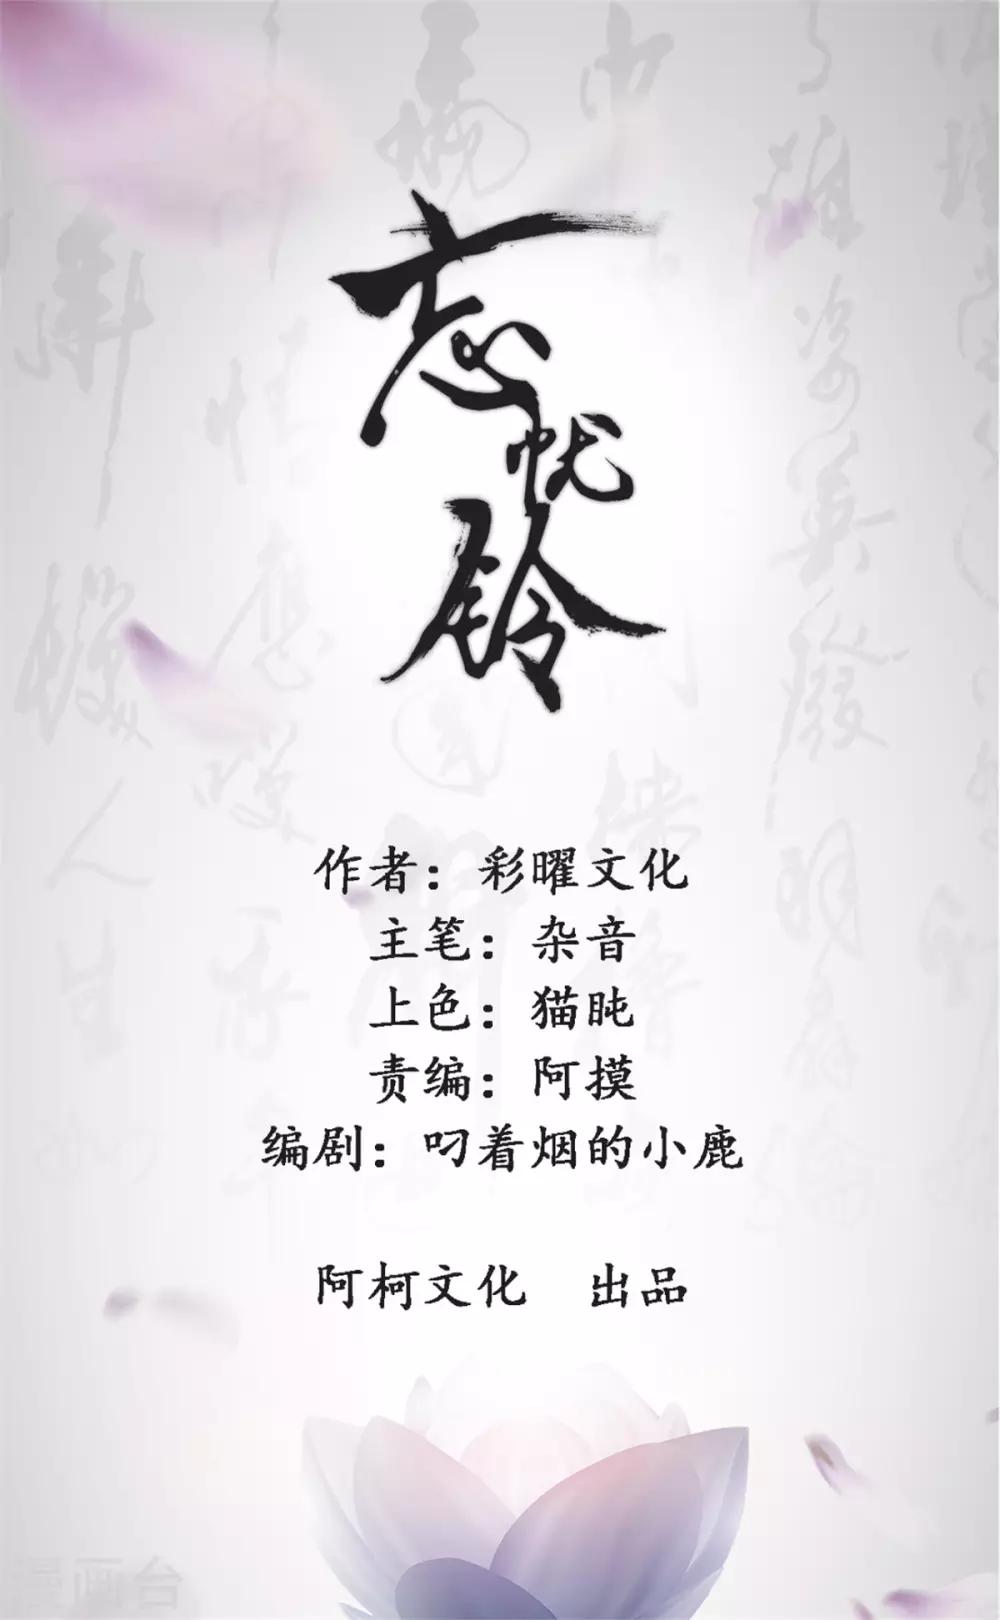 忘忧铃
作者：彩曜文化
主笔：杂音
上色：猫盹
责编：阿摸
编剧：叼着烟的小鹿
阿柯文化 出品
漫画台